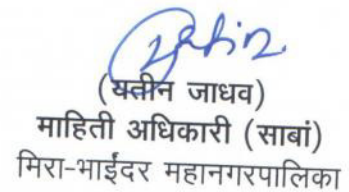 (यतीन जाधव)
माहिती अधिकारी (साबां)
मिरा-भाईंदर महानगरपालिका